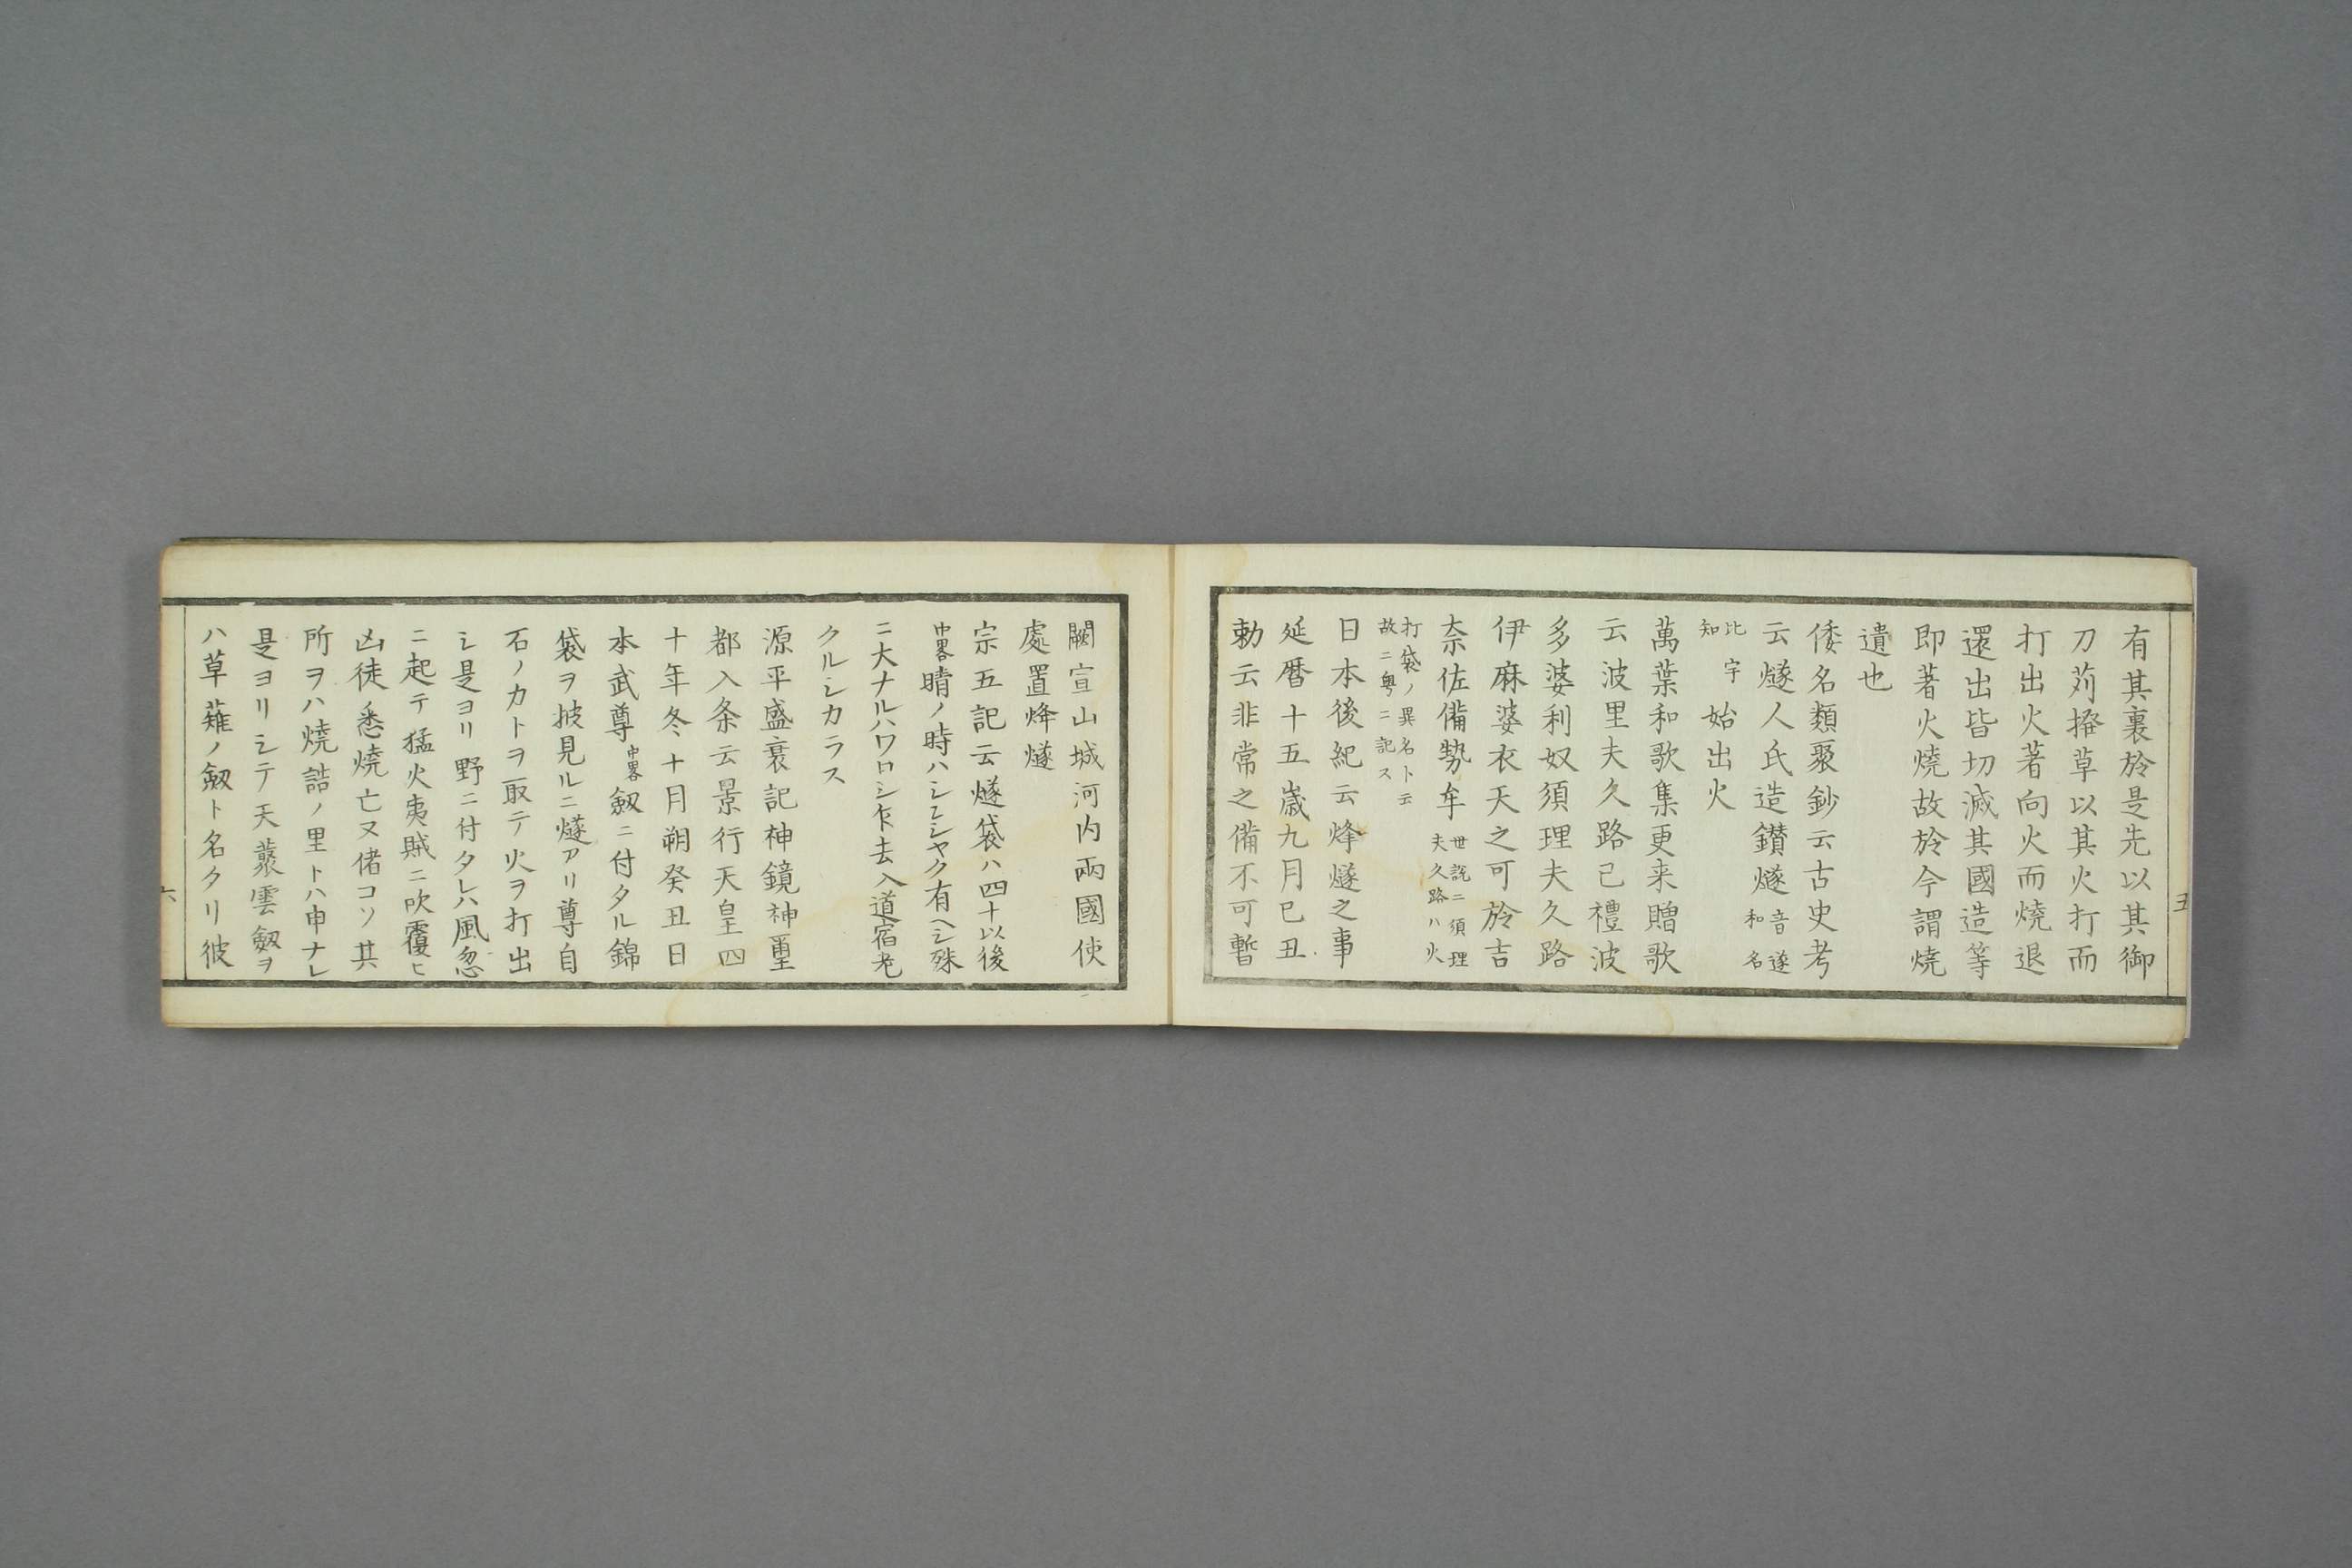 有其裏於是先以其御
刀苅撥草以其火打而
打出火著向火而燒退
還出皆切滅其國造等
即著火燒故於今謂燒
遺也
倭名類聚鈔云古史考
云燧人氏造鑽燧音遂和名
比宇知始出火
萬葉和歌集更来贈歌
云波里夫久路已禮波
多婆利奴須理夫久路
伊麻婆衣天之可於吉
奈佐備勢牟世説ニ須理夫久路ハ火
打袋ノ異名ト云故ニ粤ニ記ス
日本後紀云烽燧之事
延曆十五歳九月己丑
勅云非常之備不可暫
闕宣山城河内兩國使
處置烽燧
宗五記云燧袋ハ四十以後
中畧晴ノ時ハシシヤク有ヘシ殊
ニ大ナルハワロシ乍去入道宿老
クルシカラス
源平盛衰記神鏡神璽
都入条云景行天皇四
十年冬十月朔癸丑日
本武尊中畧劔ニ付タル錦
袋ヲ披見ルニ燧アリ尊自
石ノカトヲ取テ火ヲ打出
シ是ヨリ野ニ付タレハ風忽
ニ起テ猛火夷賊ニ吹覆ヒ
凶徒悉燒亡ヌ偖コソ其
所ヲハ燒詰ノ里トハ申ナレ
是ヨリシテ天叢雲劔ヲ
ハ草薙ノ劔ト名タリ彼
五
六